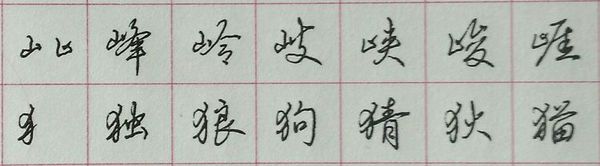 山山峰岭岐峡峻崖
犭独狼狗猜狄猫